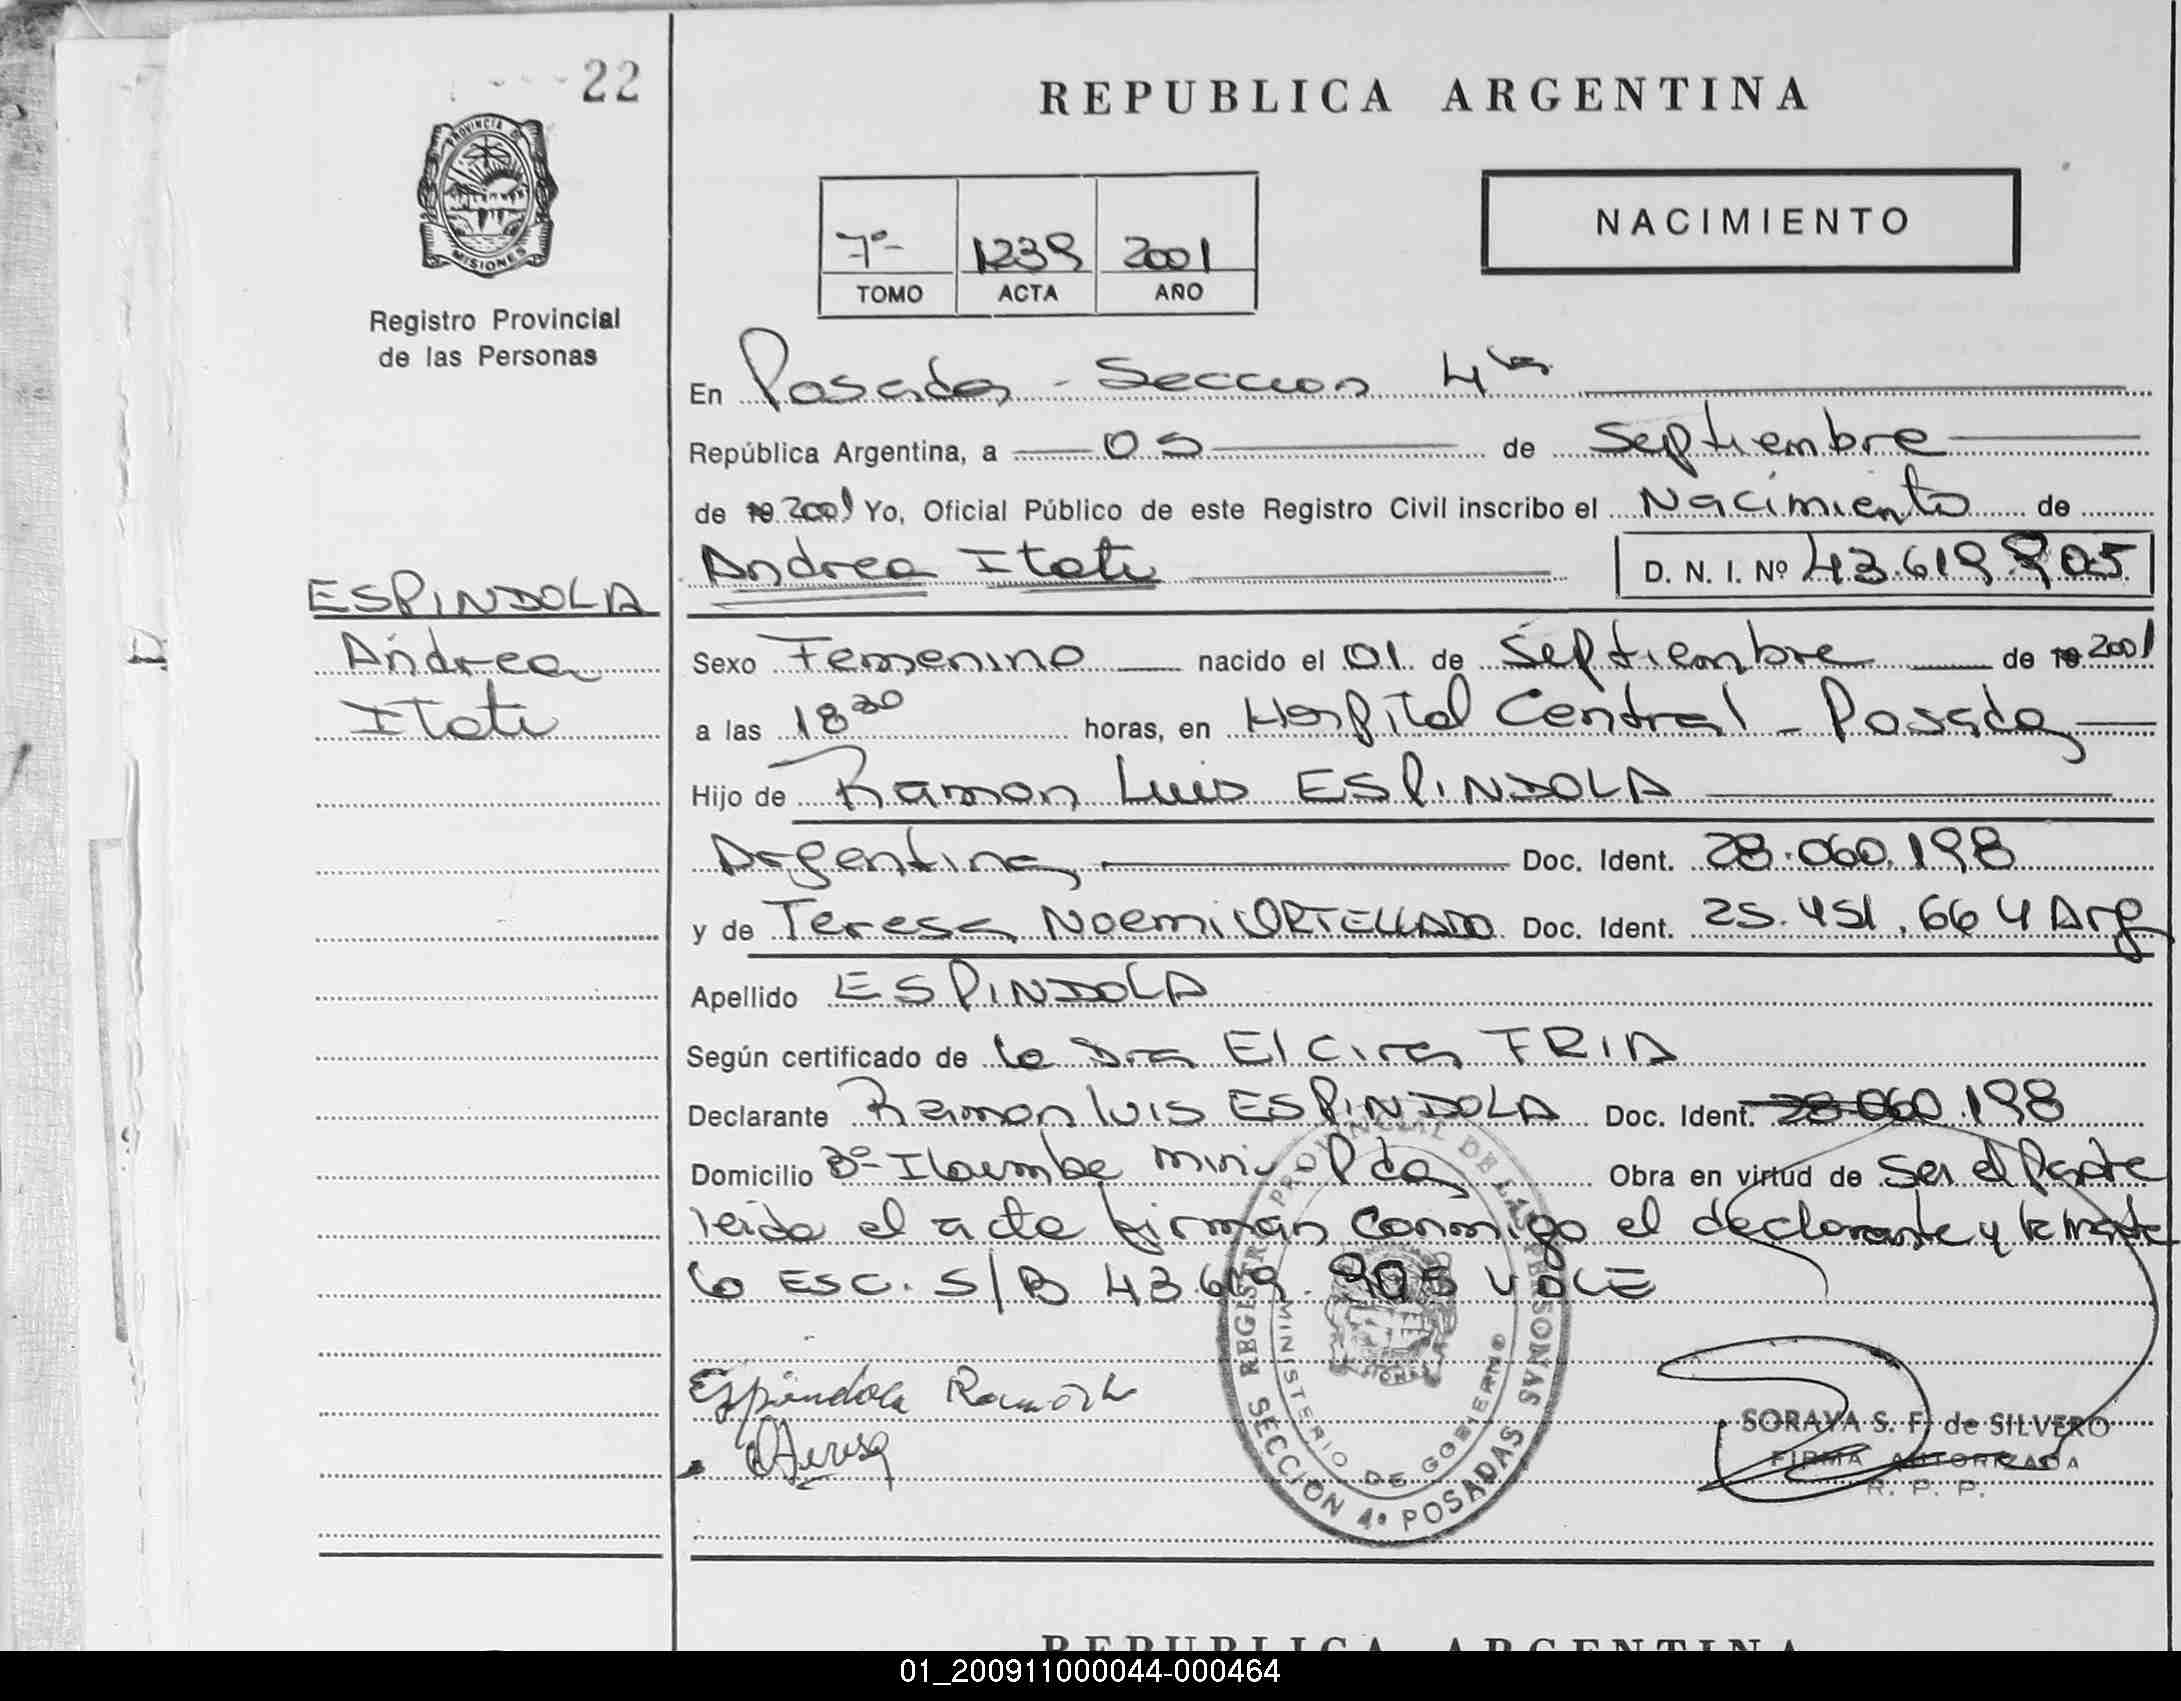 22
PROVINCIA DE
MISIONES
Registro Provincial
de las Personas
REPUBLICA ARGENTINA
NACIMIENTO
7º 1239 2001
TOMO ACTA AÑO
En Posadas - Seccion 4ta
República Argentina, a 05 de Septiembre
de 19 2001 Yo, Oficial Público de este Registro Civil inscribo el Nacimiento de
Andrea Itati D. N. I. Nº 43.619.905
ESPINDOLA
Andrea
Itati
Sexo Femenino nacido el 01 de Septiembre de 19 2001
a las 18 30 horas, en Hospital Central - Posadas
Hijo de Ramon Luis ESPINDOLA
Argentina Doc. Ident. 28.060.198
y de Teresa Noemi ORTELLADO Doc. Ident. 25.451.664 Arg
Apellido ESPINDOLA
Según certificado de la Dra Elcira FRIA
Declarante Ramon luis ESPINDOLA Doc. Ident. 28.060.198
Domicilio Bº Itaembe mini - Pdas Obra en virtud de Ser el Padre
leida el acta firman conmigo el declarante y la madre
lo ESC. S/B 43.619.905 VALE
Espindola Ramón L
REGISTRO PROVINCIAL DE LAS PERSONAS
MINISTERIO DE GOBIERNO
SECCION 4º POSADAS
SORAYA S. F. de SILVERO
FIRMA AUTORIZADA
R. P. P.
REPUBLICA ARGENTINA
01_200911000044-000464